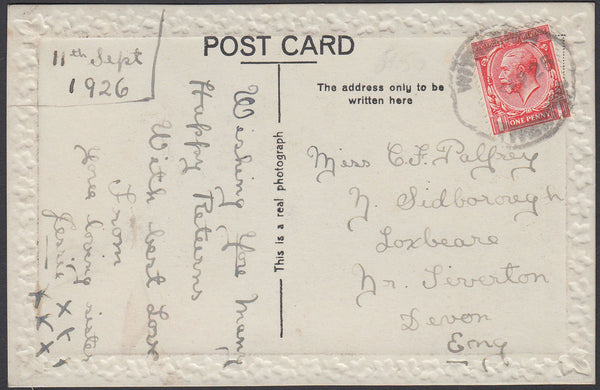 11th Sept
1926
POST CARD
The address only to be
written here
ONE PENNY
This is a real photograph
Wishing You Many
Happy Returns
With best Love
From
Your loving sister
Jessie xxx
xxx
Miss C. F. Palfrey
N. Sidborough
Loxbeare
Nr. Tiverton
Devon
Eng